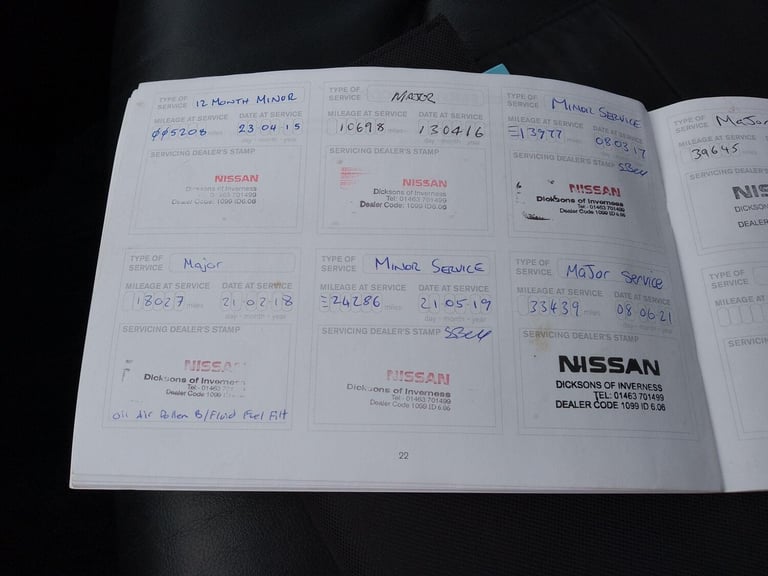 TYPE OF SERVICE 12 MONTH MINOR
MILEAGE AT SERVICE DATE AT SERVICE
005208 miles 23 04 15
day - month - year
SERVICING DEALER'S STAMP
NISSAN
Dicksons of Inverness
Tel: 01463 701499
Dealer Code: 1099 ID6.06
TYPE OF SERVICE MAJOR
MILEAGE AT SERVICE DATE AT SERVICE
10698 miles 130416
day - month - year
SERVICING DEALER'S STAMP
NISSAN
Dicksons of Inverness
Tel: 01463 701499
Dealer Code: 1099 ID6.06
TYPE OF SERVICE MINOR SERVICE
MILEAGE AT SERVICE DATE AT SERVICE
13777 miles 08 03 17
day - month - year
SERVICING DEALER'S STAMP
NISSAN
Dicksons of Inverness
Tel: 01463 701499
Dealer Code: 1099 ID6.06
TYPE OF SERVICE Major
MILEAGE AT SERVICE DATE AT SERVICE
18027 miles 21 02 18
day - month - year
SERVICING DEALER'S STAMP
NISSAN
Dicksons of Inverness
Tel: 01463 701499
Dealer Code: 1099 ID6.06
Oil Air Pollen B/Fluid Fuel Filt
TYPE OF SERVICE MINOR SERVICE
MILEAGE AT SERVICE DATE AT SERVICE
24286 miles 21 05 19
day - month - year
SERVICING DEALER'S STAMP
NISSAN
Dicksons of Inverness
Tel: 01463 701499
Dealer Code: 1099 ID 6.06
TYPE OF SERVICE Major Service
MILEAGE AT SERVICE DATE AT SERVICE
33439 miles 08 06 21
day - month - year
SERVICING DEALER'S STAMP
NISSAN
DICKSONS OF INVERNESS
TEL: 01463 701499
DEALER CODE 1099 ID 6.06
22
TYPE OF SERVICE Major
MILEAGE AT SERVICE
39645 miles
SERVICING DEALER'S
NIS
DICKSON
DEALER
TYPE OF SERVICE
MILEAGE AT
SERVICING